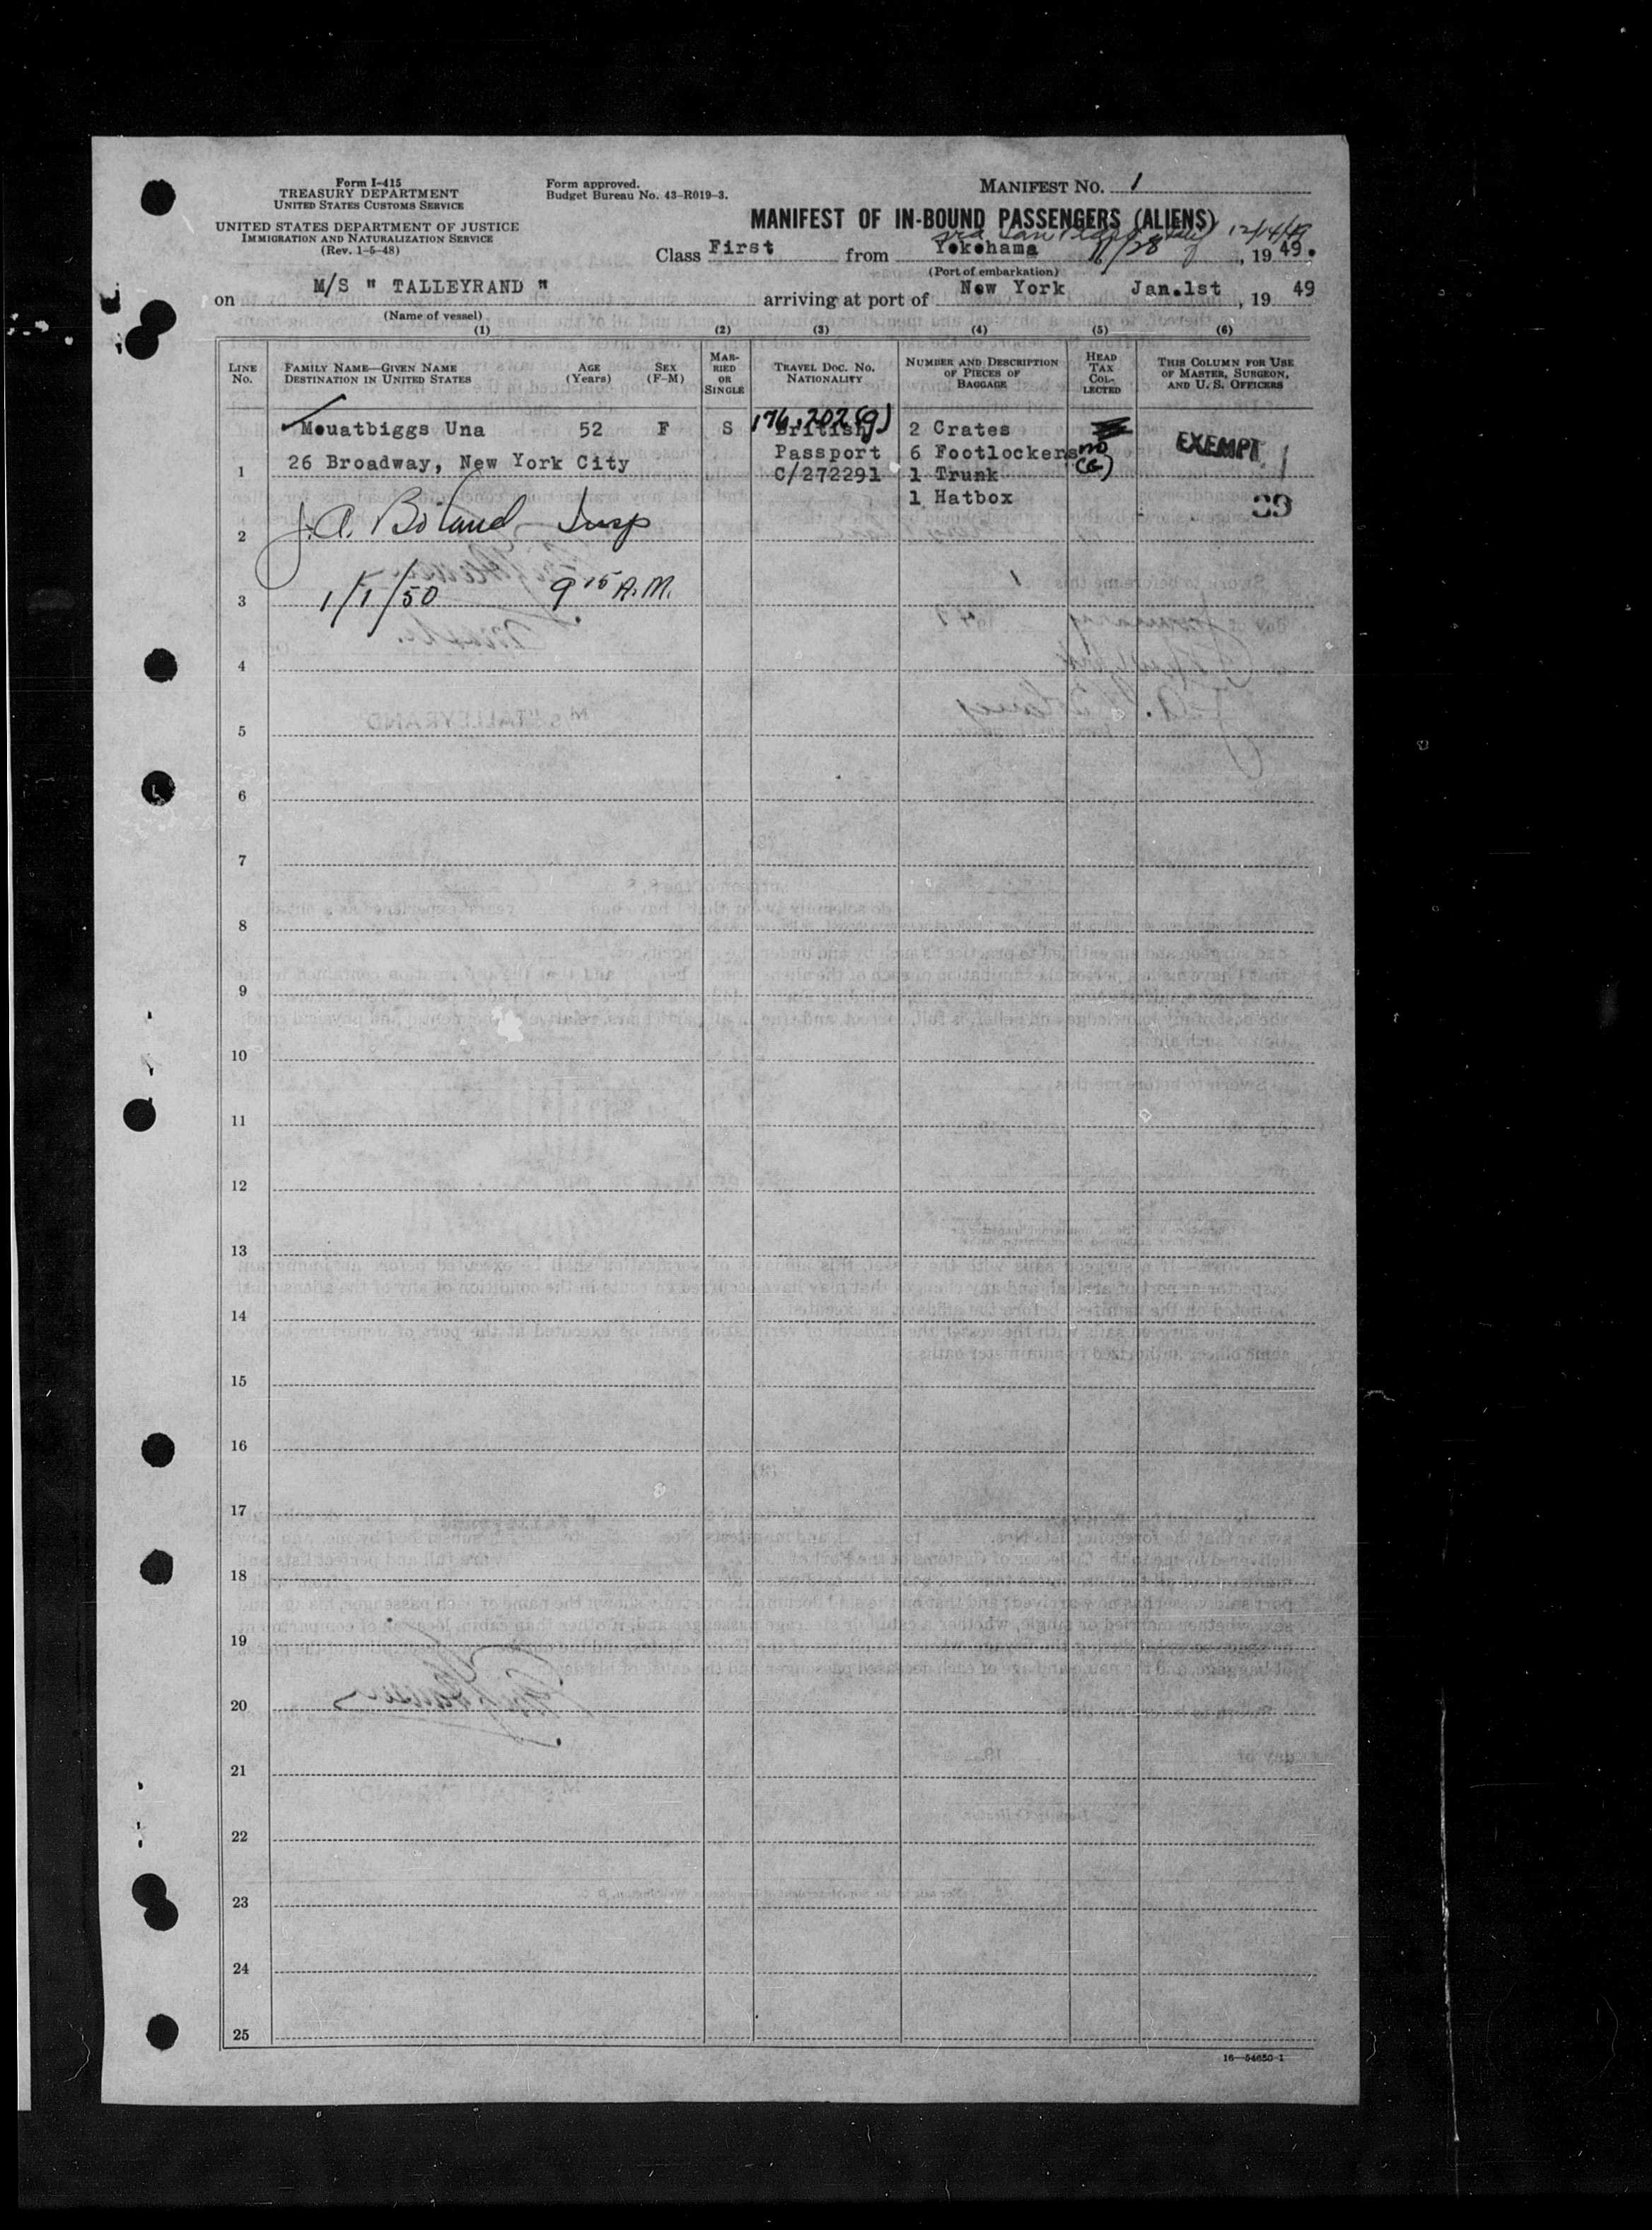 Form I-415
TREASURY DEPARTMENT
UNITED STATES CUSTOMS SERVICE
UNITED STATES DEPARTMENT OF JUSTICE
IMMIGRATION AND NATURALIZATION SERVICE
(Rev. 1-5-48)
Form approved.
Budget Bureau No. 43-R019-3.
MANIFEST NO. 1
MANIFEST OF IN-BOUND PASSENGERS (ALIENS)
via San Pedro 12/14/49
Class First from Yokohama 11/28, 1949.
(Port of embarkation)
on M/S " TALLEYRAND " arriving at port of New York Jan.1st, 19 49
(Name of vessel)
(1) (2) (3) (4) (5) (6)
LINE NO. FAMILY NAME—GIVEN NAME DESTINATION IN UNITED STATES AGE (Years) SEX (F-M) MARRIED OR SINGLE TRAVEL DOC. NO. NATIONALITY NUMBER AND DESCRIPTION OF PIECES OF BAGGAGE HEAD TAX COLLECTED THIS COLUMN FOR USE OF MASTER, SURGEON, AND U. S. OFFICERS
176,202(9)
Mouatbiggs Una 52 F S British 2 Crates
EXEMPT
26 Broadway, New York City Passport 6 Footlockers no
1 C/272291 1 Trunk
1 Hatbox 39
J. A. Boland Insp
2
1/1/50 9 15 A.M.
3
4
5
6
7
8
9
10
11
12
13
14
15
16
17
18
19
20
21
22
23
24
25
16—54650-1